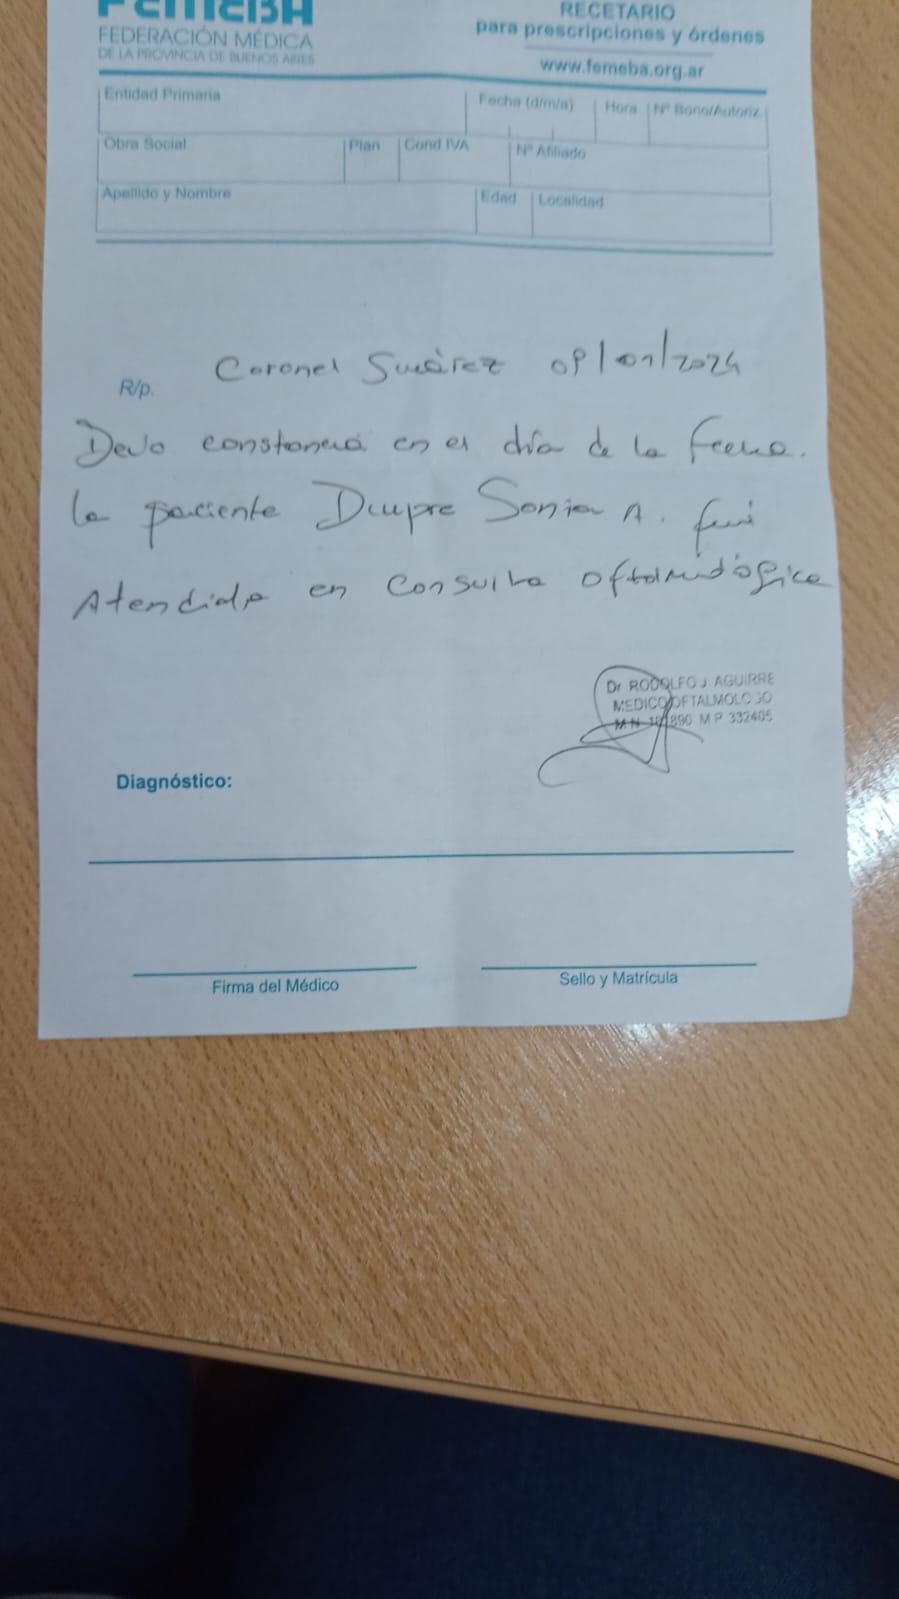 FEMEBA
FEDERACIÓN MÉDICA
DE LA PROVINCIA DE BUENOS AIRES
RECETARIO
para prescripciones y órdenes
www.femeba.org.ar
Entidad Primaria
Fecha (d/m/a)
Hora
Nº Bono/Autoriz.
Obra Social
Plan
Cond IVA
Nº Afiliado
Apellido y Nombre
Edad
Localidad
R/p.
Coronel Suárez 09/01/2024
Dejo constancia en el día de la fecha.
la paciente Dupre Sonia A. fue
Atendida en consulta oftalmológica
Dr RODOLFO J AGUIRRE
MEDICO OFTALMOLOGO
M P 332405
Diagnóstico:
Firma del Médico
Sello y Matrícula